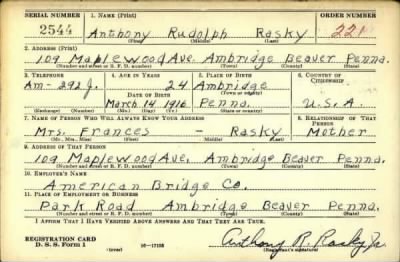 SERIAL NUMBER 1. NAME (Print) ORDER NUMBER
2544 Anthony Rudolph Rasky 221
(First) (Middle) (Last)
2. ADDRESS (Print)
109 Maplewood Ave. Ambridge Beaver Penna.
(Number and street or R. F. D. number) (Town) (County) (State)
3. TELEPHONE 4. AGE IN YEARS 5. PLACE OF BIRTH 6. COUNTRY OF CITIZENSHIP
Am-292J. 24 Ambridge
DATE OF BIRTH (Town or county)
March 14 1916 Penna. U.S.A.
(Exchange) (Number) (Mo.) (Day) (Yr.) (State or country)
7. NAME OF PERSON WHO WILL ALWAYS KNOW YOUR ADDRESS 8. RELATIONSHIP OF THAT PERSON
Mrs. Frances - Rasky Mother
(Mr., Mrs., Miss) (First) (Middle) (Last)
9. ADDRESS OF THAT PERSON
109 Maplewood Ave. Ambridge Beaver Penna.
(Number and street or R. F. D. number) (Town) (County) (State)
10. EMPLOYER'S NAME
American Bridge Co.
11. PLACE OF EMPLOYMENT OR BUSINESS
Park Road Ambridge Beaver Penna.
(Number and street or R. F. D. number) (Town) (County) (State)
I AFFIRM THAT I HAVE VERIFIED ABOVE ANSWERS AND THAT THEY ARE TRUE.
REGISTRATION CARD
D. S. S. Form 1 (over) 16-17105 Anthony R. Rasky Jr.
(Registrant's signature)